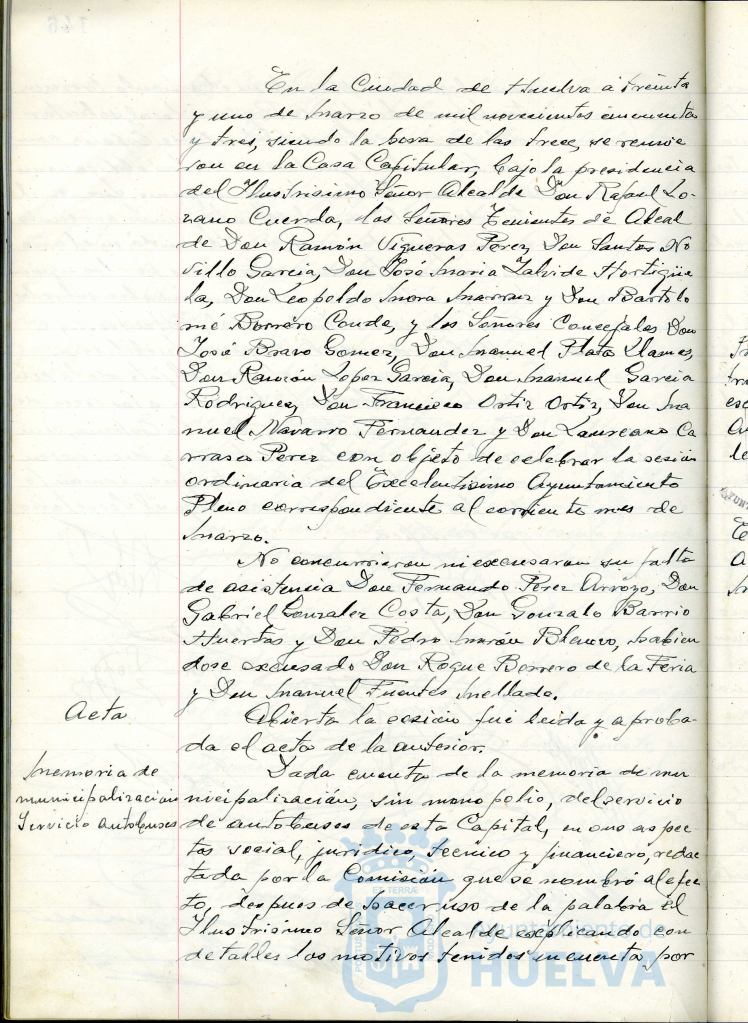 En la Ciudad de Huelva a treinta
y uno de Marzo de mil novecientos cincuenta
y tres, siendo la hora de las trece, se reunie
ron en la Casa Capitular, bajo la presidencia
del Ilustrisimo Señor Alcalde Don Rafael Lo-
zano Cuerda, los Señores Tenientes de Alcal
de Don Ramón Vigueras Perez, Don Santos No
villo Garcia, Don José Maria Zalvide Hortigüe
la, Don Leopoldo Mora Marraez y Don Bartolo
mé Borrero Conde, y los Señores Concejales Don
José Bravo Gomez, Don Manuel Plata Llamas,
Don Ramón Lopez Garcia, Don Manuel Garcia
Rodriguez, Don Francisco Ortiz Ortiz, Don Ma
nuel Navarro Fernandez y Don Laureano Ca
rrasco Perez con objeto de celebrar la sesión
ordinaria del Excelentisimo Ayuntamiento
Pleno correspondiente al corriente mes de
Marzo.
No concurrieron ni excusaron su falta
de asistencia Don Fernando Perez Arroyo, Don
Gabriel Gonzalez Costa, Don Gonzalo Barrio
Huertas y Don Pedro Marón Blanco, habien
dose excusado Don Roque Borrero de la Feria
y Don Manuel Fuentes Mellado.
Acta
Abierta la sesión fué leida y aproba-
da el acta de la anterior.
Memoria de
municipalización
Servicio autobuses
Dada cuenta de la memoria de mu
nicipalización, sin monopolio, del servicio
de autobuses de esta Capital, en sus aspec
tos social, juridico, tecnico y financiero, redac
tada por la Comisión que se nombró al efec
to, despues de hacer uso de la palabra el
Ilustrisimo Señor Alcalde explicando con
detalles los motivos tenidos en cuenta por
Ayuntamiento de
HUELVA